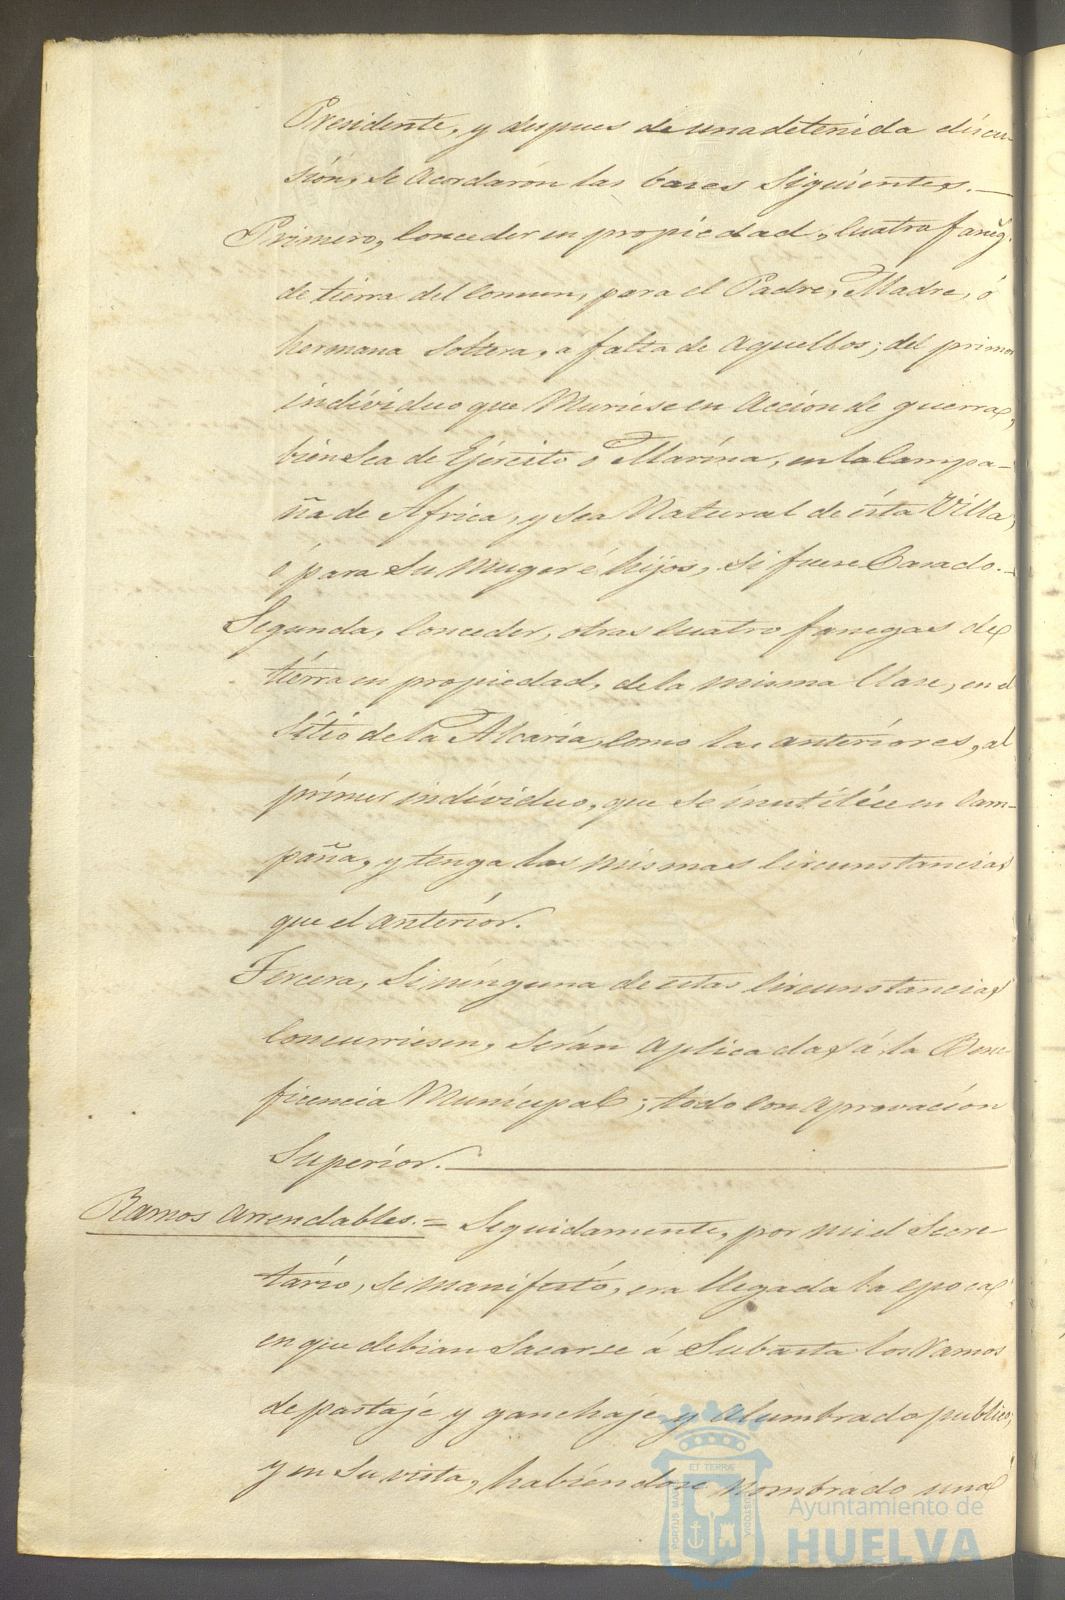 Presidente, y despues de una detenida discu-
sión, se acordarón las bases siguientes.—
Primero, conceder en propiedad, cuatro faneg.s
de tierra del comun, para el Padre, Madre, ó
hermana soltera, a falta de aquellos; del primer
individuo que muriese en acción de guerra,
bien sea de Ejército ó Marína, en la campa-
ña de Africa, y sea natural de ésta Villa,
ó para su muger é hijos, si fuere casado.—
Segunda, conceder, otras cuatro fanegas de
tiérra en propiedad, de la misma clase, en el
sítio de la Alcaría, como las anterióres, al
prímer indíviduo, que se inutilíce en cam-
paña, y tenga las mismas circunstancias
que el anteriór.
Tercera, si nínguna de estas circunstancias
concurriesen, serán aplicadas á la Bene-
ficencia Munícipal; todo con aprovación
Superíor.
Ramos arrendables.= Seguidamente, por mi el Secre
tarío, se manifestó, era llegada la epoca
en que debian sacarse á subasta los ramos
de pastaje y ganchaje, y alumbrado publico,
y en su vista, habiéndose nombrado una
PORTUS MARIS ET TERRÆ CUSTODIA
Ayuntamiento de
HUELVA